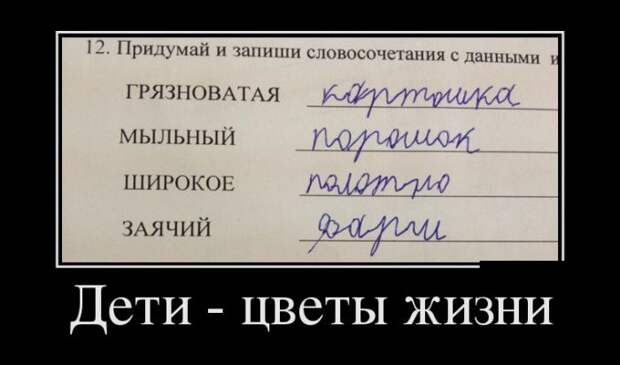 12. Придумай и запиши словосочетания с данными и
ГРЯЗНОВАТАЯ картошка
МЫЛЬНЫЙ порошок
ШИРОКОЕ полотно
ЗАЯЧИЙ фарш
Дети - цветы жизни